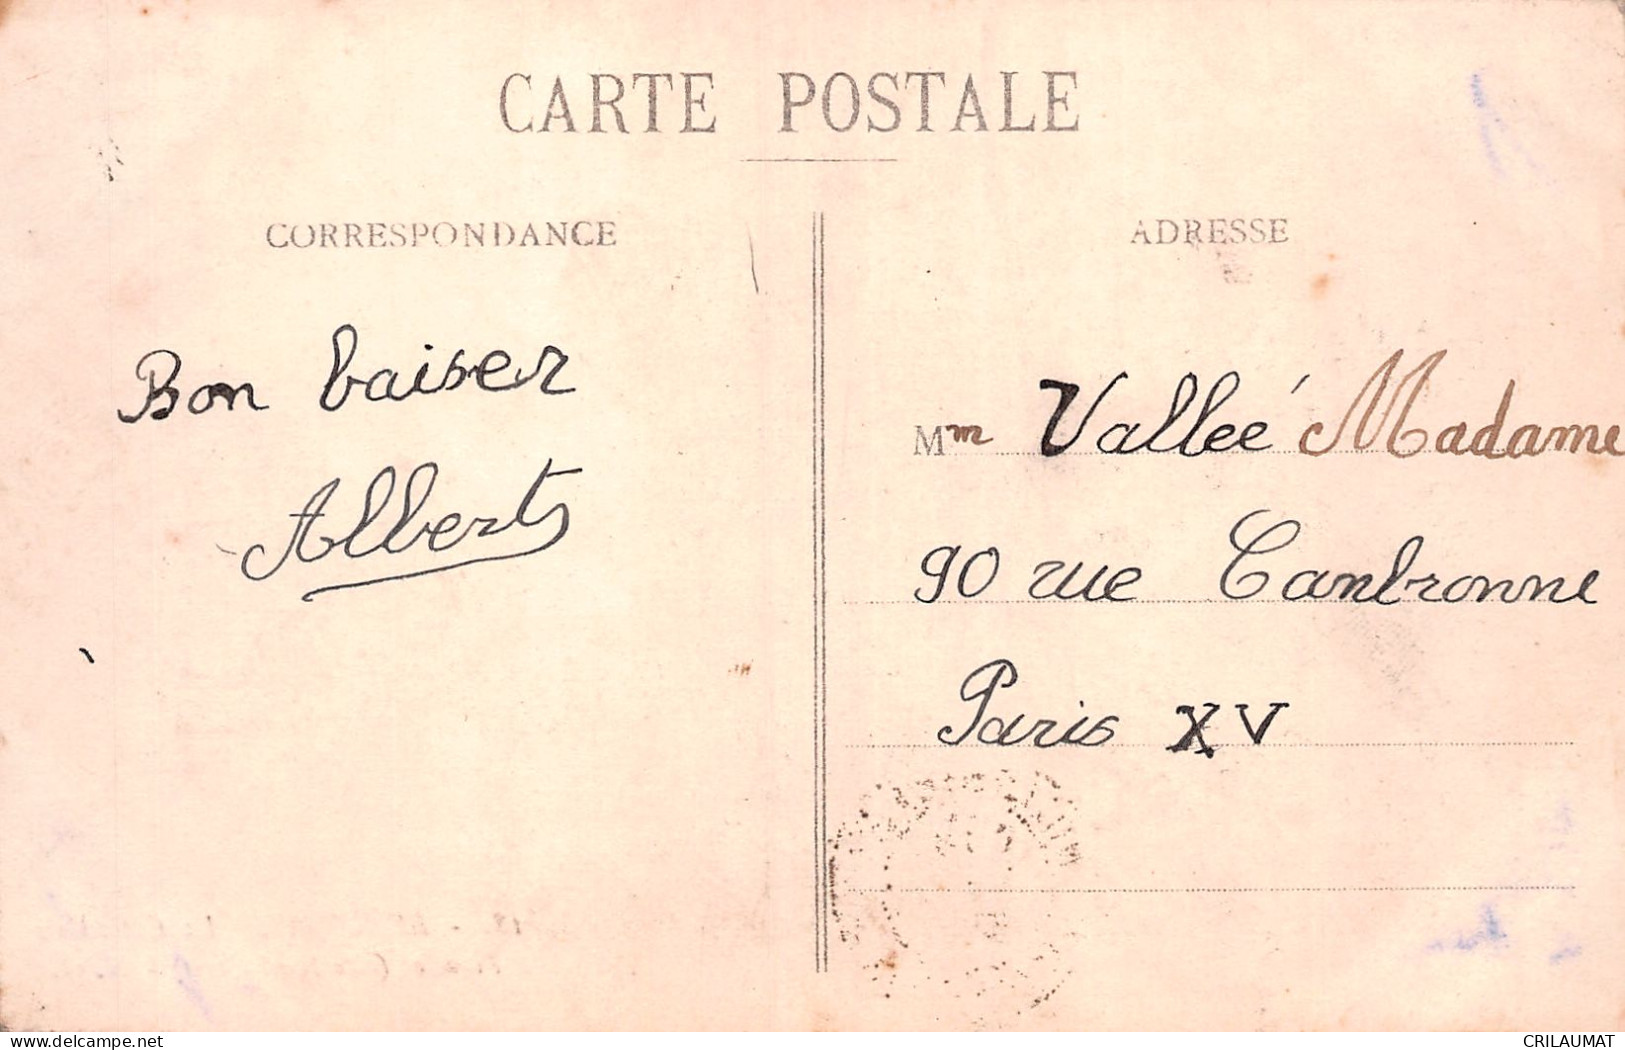 CARTE POSTALE
CORRESPONDANCE
Bon baiser
Albert
ADRESSE
Mm Valleé Madame
90 rue Canbronne
Paris XV
delcampe.net
CRILAUMAT